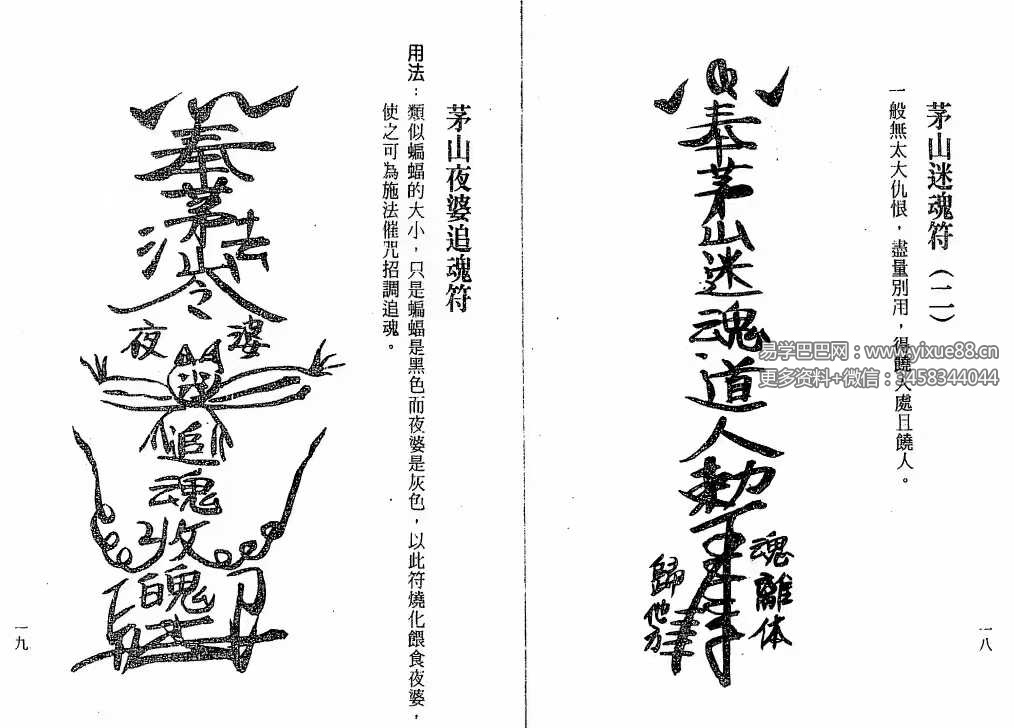 茅山迷魂符（二）
一般無太大仇恨，儘量別用，得饒人處且饒人。
奉茅山迷魂道人勅
魂離体
歸他方
一八
茅山夜婆追魂符
用法：類似蝙蝠的大小，只是蝙蝠是黑色而夜婆是灰色，以此符燒化餵食夜婆，
使之可為施法催咒招調追魂。
奉茅山法令
夜婆
追魂
收
魄
一九
易学巴巴网：www.yixue88.cn
更多资料+微信：3458344044